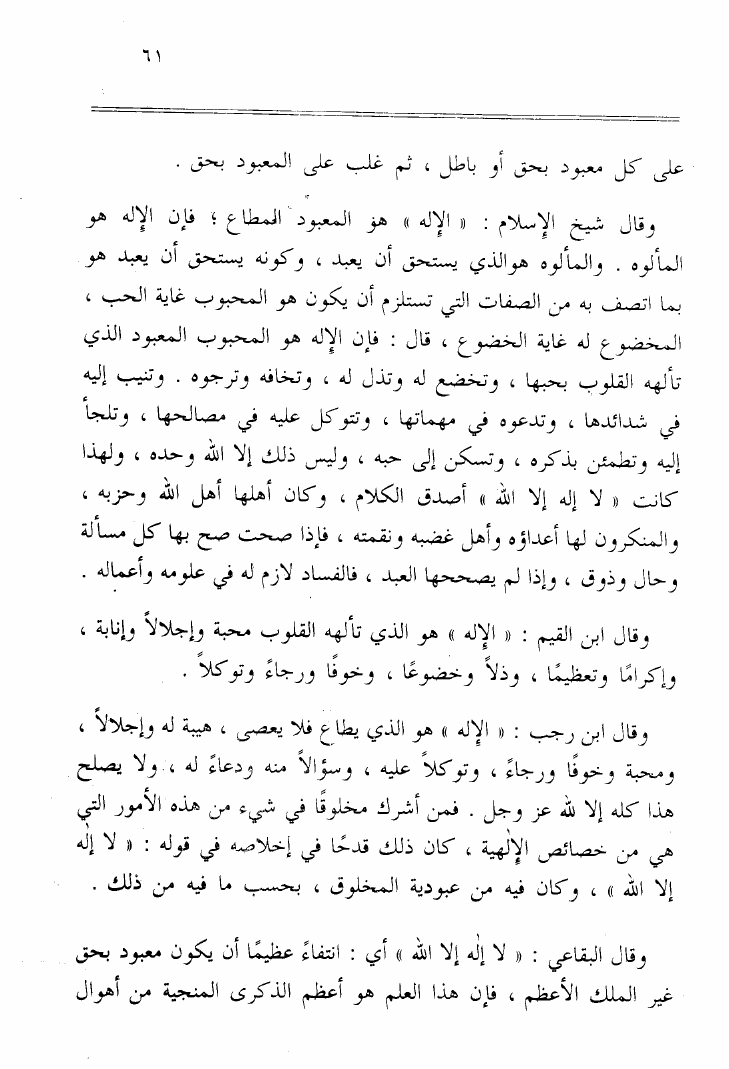 ٦١
على كل معبود بحق أو باطل ، ثم غلب على المعبود بحق .
وقال شيخ الإسلام : « الإله » هو المعبود المطاع ؛ فإن الإله هو
المألوه . والمألوه هوالذي يستحق أن يعبد ، وكونه يستحق أن يعبد هو
بما اتصف به من الصفات التي تستلزم أن يكون هو المحبوب غاية الحب ،
المخضوع له غاية الخضوع ، قال : فإن الإله هو المحبوب المعبود الذي
تألهه القلوب بحبها ، وتخضع له وتذل له ، وتخافه وترجوه . وتنيب إليه
في شدائدها ، وتدعوه في مهماتها ، وتتوكل عليه في مصالحها ، وتلجأ
إليه وتطمئن بذكره ، وتسكن إلى حبه ، وليس ذلك إلا الله وحده ، ولهذا
كانت « لا إله إلا الله » أصدق الكلام ، وكان أهلها أهل الله وحزبه ،
والمنكرون لها أعداؤه وأهل غضبه ونقمته ، فإذا صحت صح بها كل مسألة
وحال وذوق ، وإذا لم يصححها العبد ، فالفساد لازم له في علومه وأعماله .
وقال ابن القيم : « الإله » هو الذي تألهه القلوب محبة وإجلالاً وإنابة ،
وإكرامًا وتعظيمًا ، وذلاً وخضوعًا ، وخوفًا ورجاءً وتوكلاً .
وقال ابن رجب : « الإله » هو الذي يطاع فلا يعصى ، هيبة له وإجلالاً ،
ومحبة وخوفًا ورجاءً ، وتوكلاً عليه ، وسؤالاً منه ودعاءً له ، ولا يصلح
هذا كله إلا لله عز وجل . فمن أشرك مخلوقًا في شيء من هذه الأمور التي
هي من خصائص الإلٰهية ، كان ذلك قدحًا في إخلاصه في قوله : « لا إلٰه
إلا الله » ، وكان فيه من عبودية المخلوق ، بحسب ما فيه من ذلك .
وقال البقاعي : « لا إلٰه إلا الله » أي : انتفاءً عظيمًا أن يكون معبود بحق
غير الملك الأعظم ، فإن هذا العلم هو أعظم الذكرى المنجية من أهوال